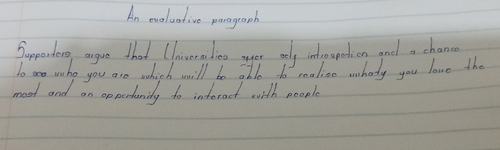 An evaluative paragraph
Supporters argue that Universities offer self introspection and a chance
to see who you are which will be able to realise what you love the
most and an opportunity to interact with people